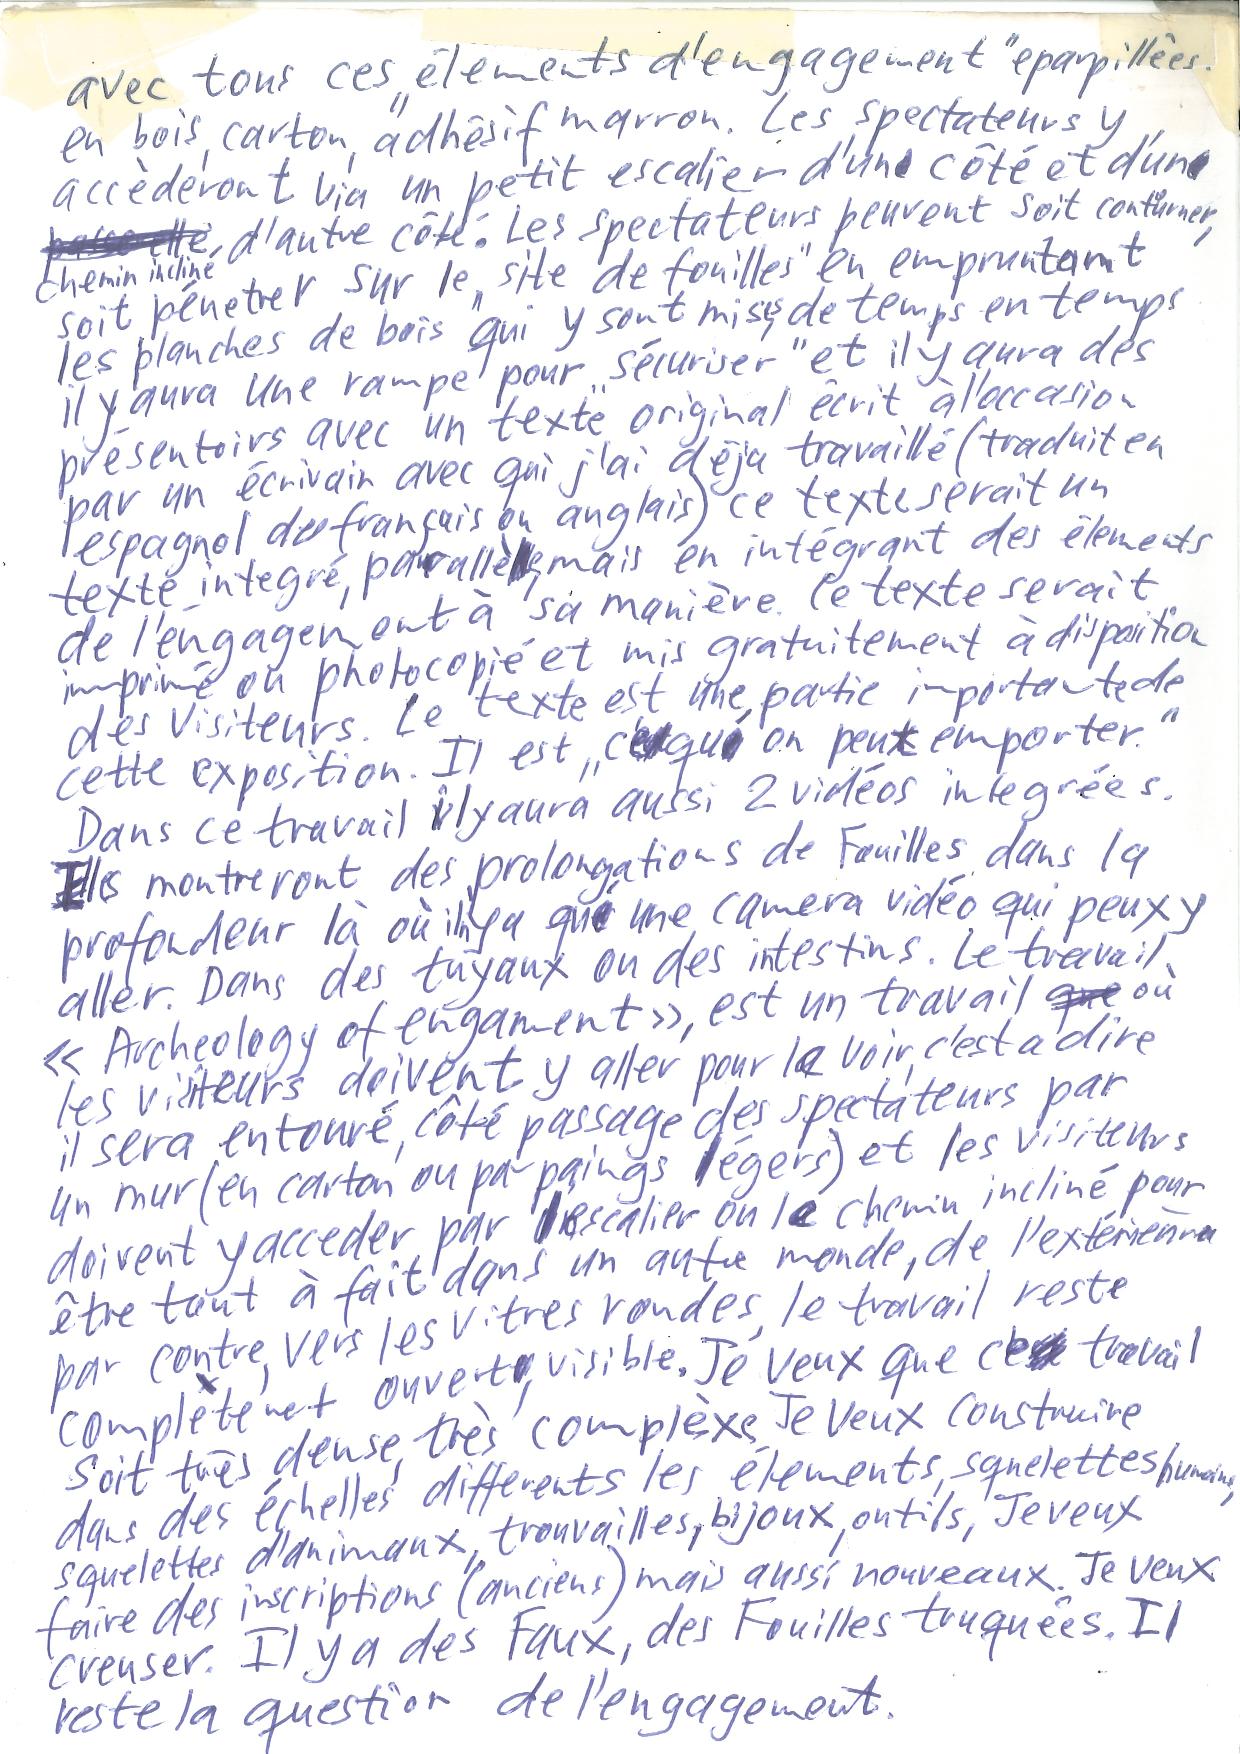 avec tous ces „élements d'engagement" eparpillêes.
en bois, carton, adhêsif marron. Les spectateurs y
accèderont via un petit escalier d'un côté et d'un
d'autre côté. Les spectateurs peuvent soit contürner,
chemin incliné
soit pénetrer sur le „site de fouilles" en empruntant
les planches de bois qui y sont mises, de temps en temps
il y aura une rampe pour „sécuriser" et il y aura des
présentoirs avec un texte original écrit à l'occasion
par un écrivain avec qui j'ai déja travaillé (traduit en
espagnol du français ou anglais) ce texte serait un
texte integré, parallèle, mais en intégrant des élements
de l'engagement à sa manière. Ce texte serait
imprimé ou photocopié et mis gratuitement à disposition
des visiteurs. Le texte est une partie importante de
cette exposition. Il est „ce qu' on peut emporter."
Dans ce travail il y aura aussi 2 vidéos integrées.
Elles montreront des prolongations de Fouilles dans la
profondeur là où il n'y a que une camera vidéo qui peux y
aller. Dans des tuyaux ou des intestins. Le travail
« Archeology of engament », est un travail où
les visiteurs doivent y aller pour le voir, c'est a dire
il sera entouré, côté passage des spectateurs par
un mur (en carton ou par paings légers) et les visiteurs
doivent y acceder par l'escalier ou le chemin incliné pour
être tout à fait dans un autre monde, de l'extérieur
par contre, vers les vitres rondes, le travail reste
complètement ouvert, visible. Je veux que ce travail
soit très dense, très complèxe, Je veux construire
dans des échelles differents les élements, squelettes humains,
squelettes d'animaux, trouvailles, bijoux, outils, Je veux
faire des inscriptions (anciens) mais aussi nouveaux. Je veux
creuser. Il y a des Faux, des Fouilles truquêes. Il
reste la question de l'engagement.